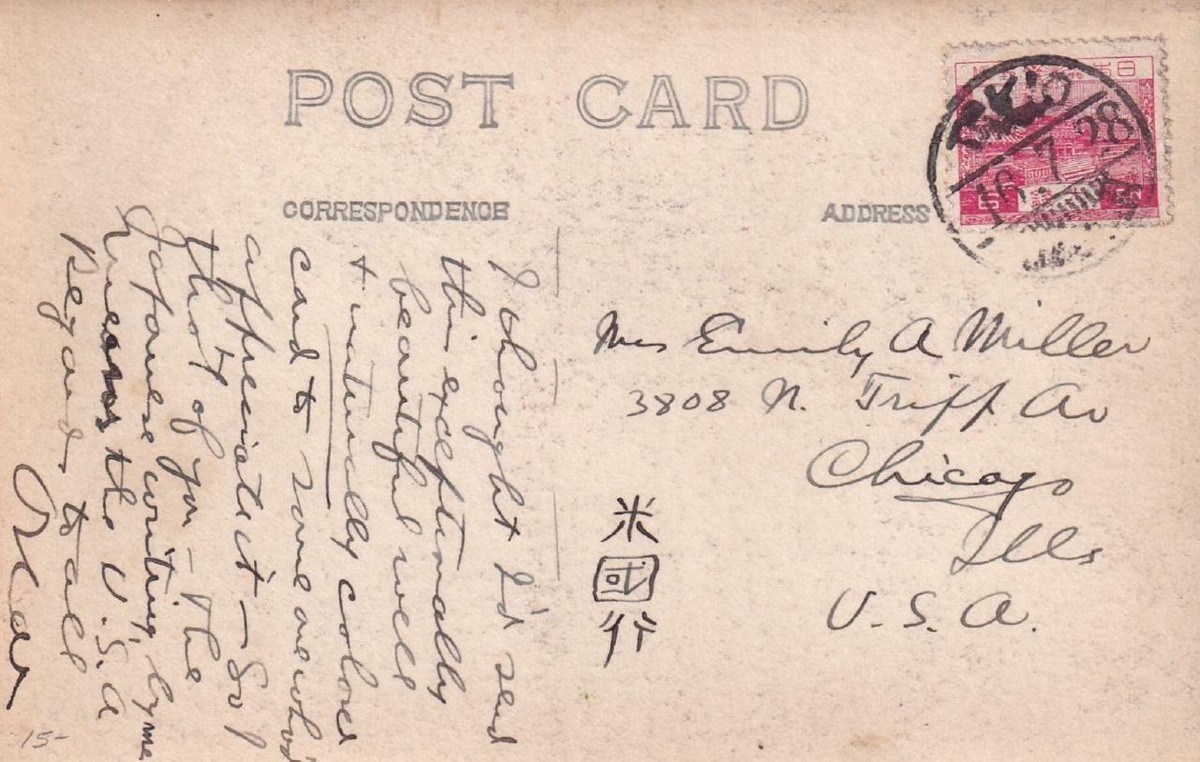 POST CARD
CORRESPONDENCE
ADDRESS
TOKIO
16 7 28
I thought I'd send
this exceptionally
beautiful well
+ naturally colored
card to some one who'd
appreciate it – So I
tho't of you – The
Japanese writing by me
means the U.S.A
Regards to all
Oscar
Mrs Emily A Miller
3808 N. Tripp Av
Chicago
Ills
U.S.A.
米國行
15-